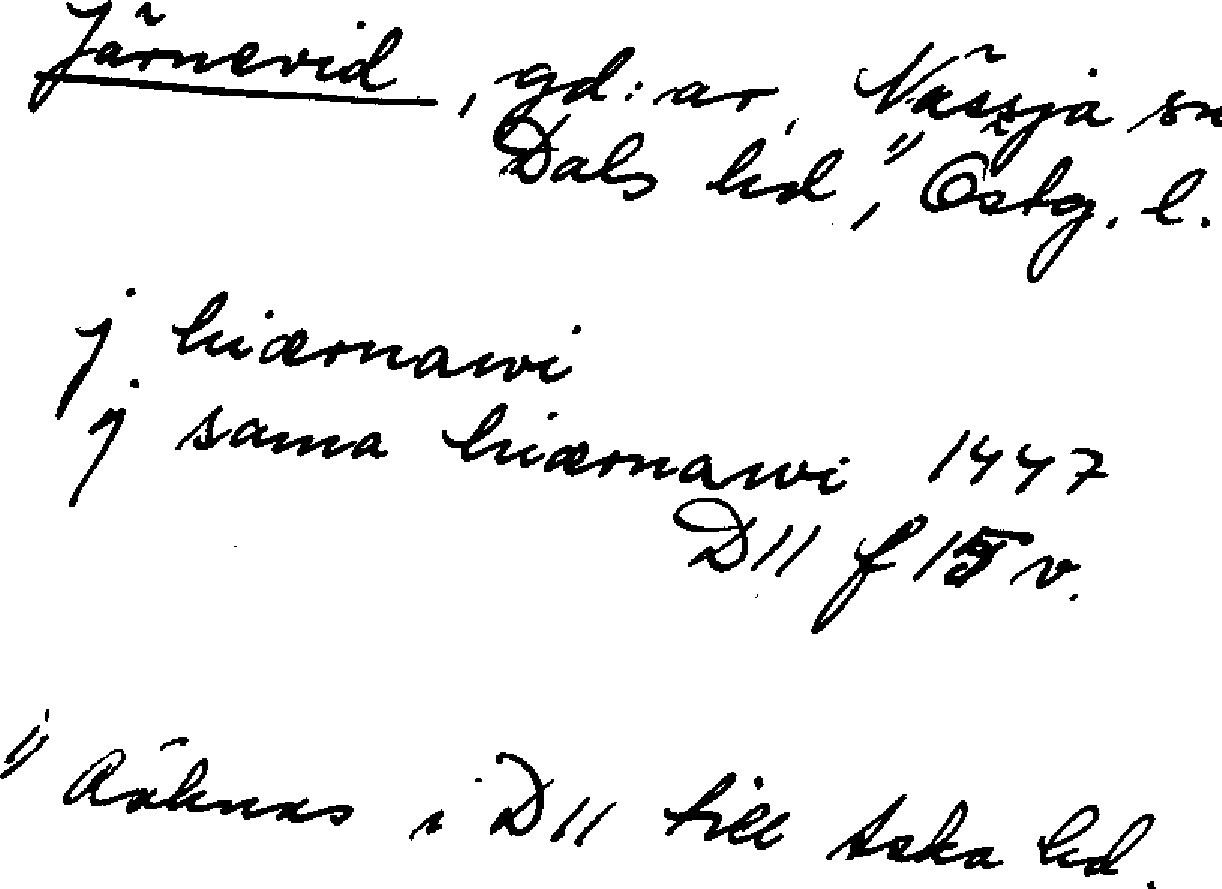 Järnevid, gd:ar, Nässja sn
Dals hd,¹⁾ Östg. l.
j hiærnawi
j sama hiærnawi 1447
D11 f 15 v.
¹⁾ Räknas i D11 till Aska hd.